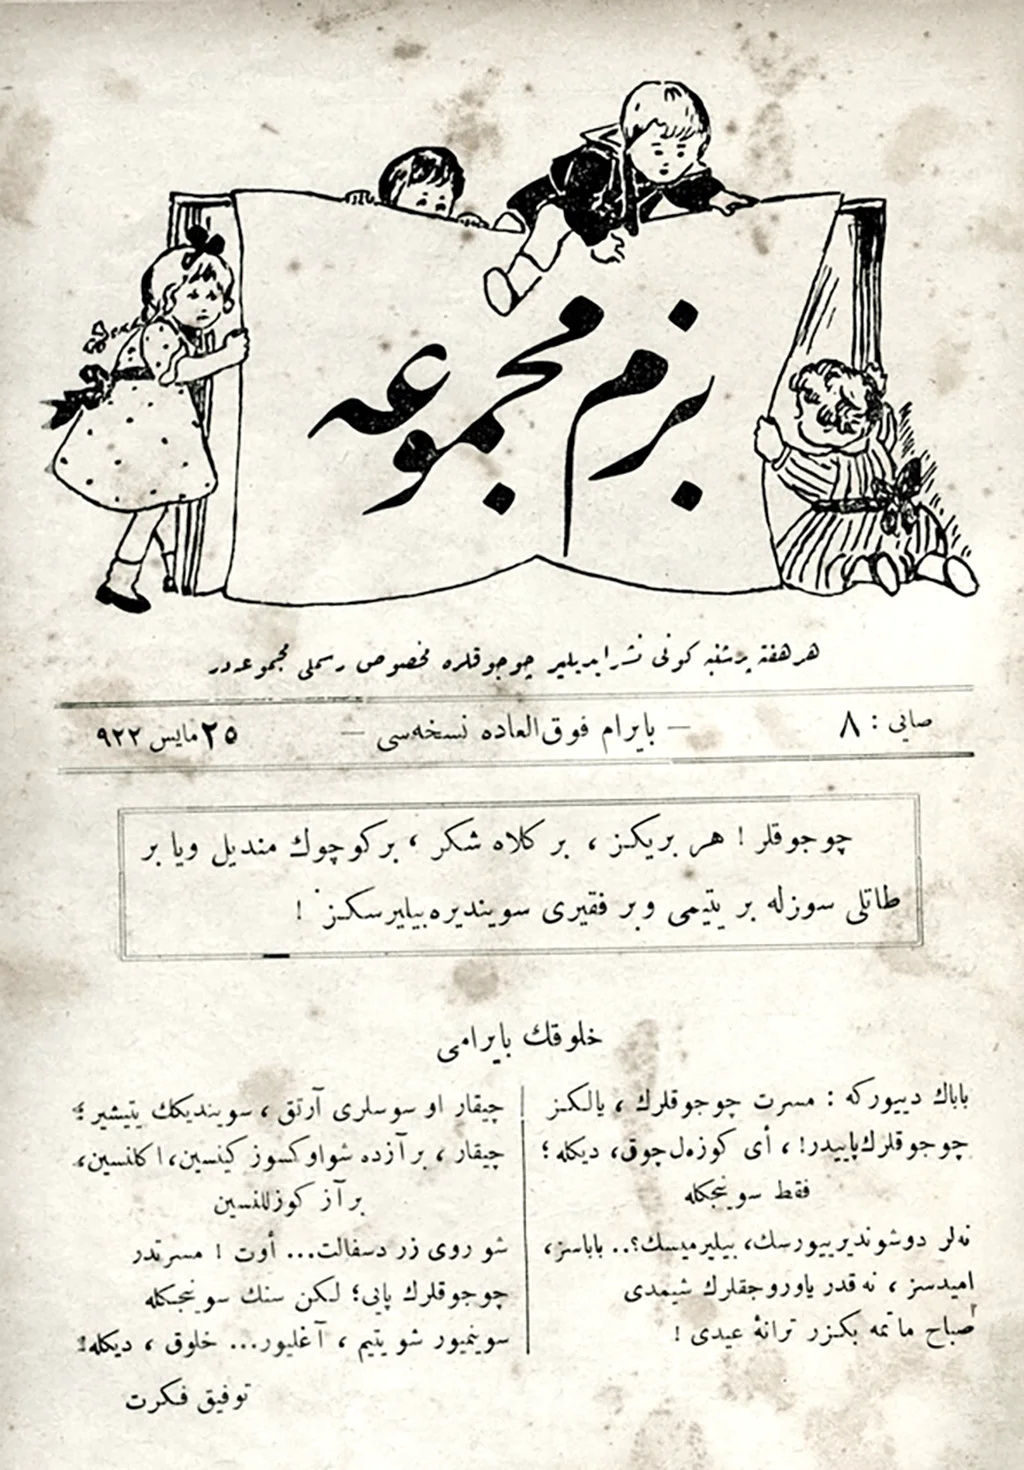 بزم مجموعه
هر هفته پرشنبه كونی نشر ايديلير چوجوقلره مخصوص رسملی مجموعه در
صايی : ٨
— بايرام فوق العاده نسخه سی —
٢٥ مايس ٩٢٢
چوجوقلر ! هر بريكز ، بر كلاه شكر ، بر كوچوك منديل ويا بر
طاتلی سوزله بر يتيمی وبر فقيری سوينديره بيليرسكز !
خلوقك بايرامی
باباك دييوركه : مسرت چوجوقلرك ، يالكز
چوجوقلرك پاييدر! ، أی كوزه ل چوق، ديكله ؛
فقط سوينجكله
نه لر دوشونديرييورسك، بيليرميسك؟.. باباسز،
اميدسز ، نه قدر ياوروجقلرك شيمدی
صباح ماتمه بكزر ترانۀ عيدی !
چيقار او سوسلری آرتق ، سوينديكك يتيشير ؛
چيقار ، بر آزده شو اوكسوز كينسين، اكلنسين،
بر آز كوزللنسين
شو روی زرد سفالت... أوت ! مسرتدر
چوجوقلرك پايی؛ لكن سنك سوينجكله
سوينميور شو يتيم ، آغليور... خلوق ، ديكله!
توفيق فكرت